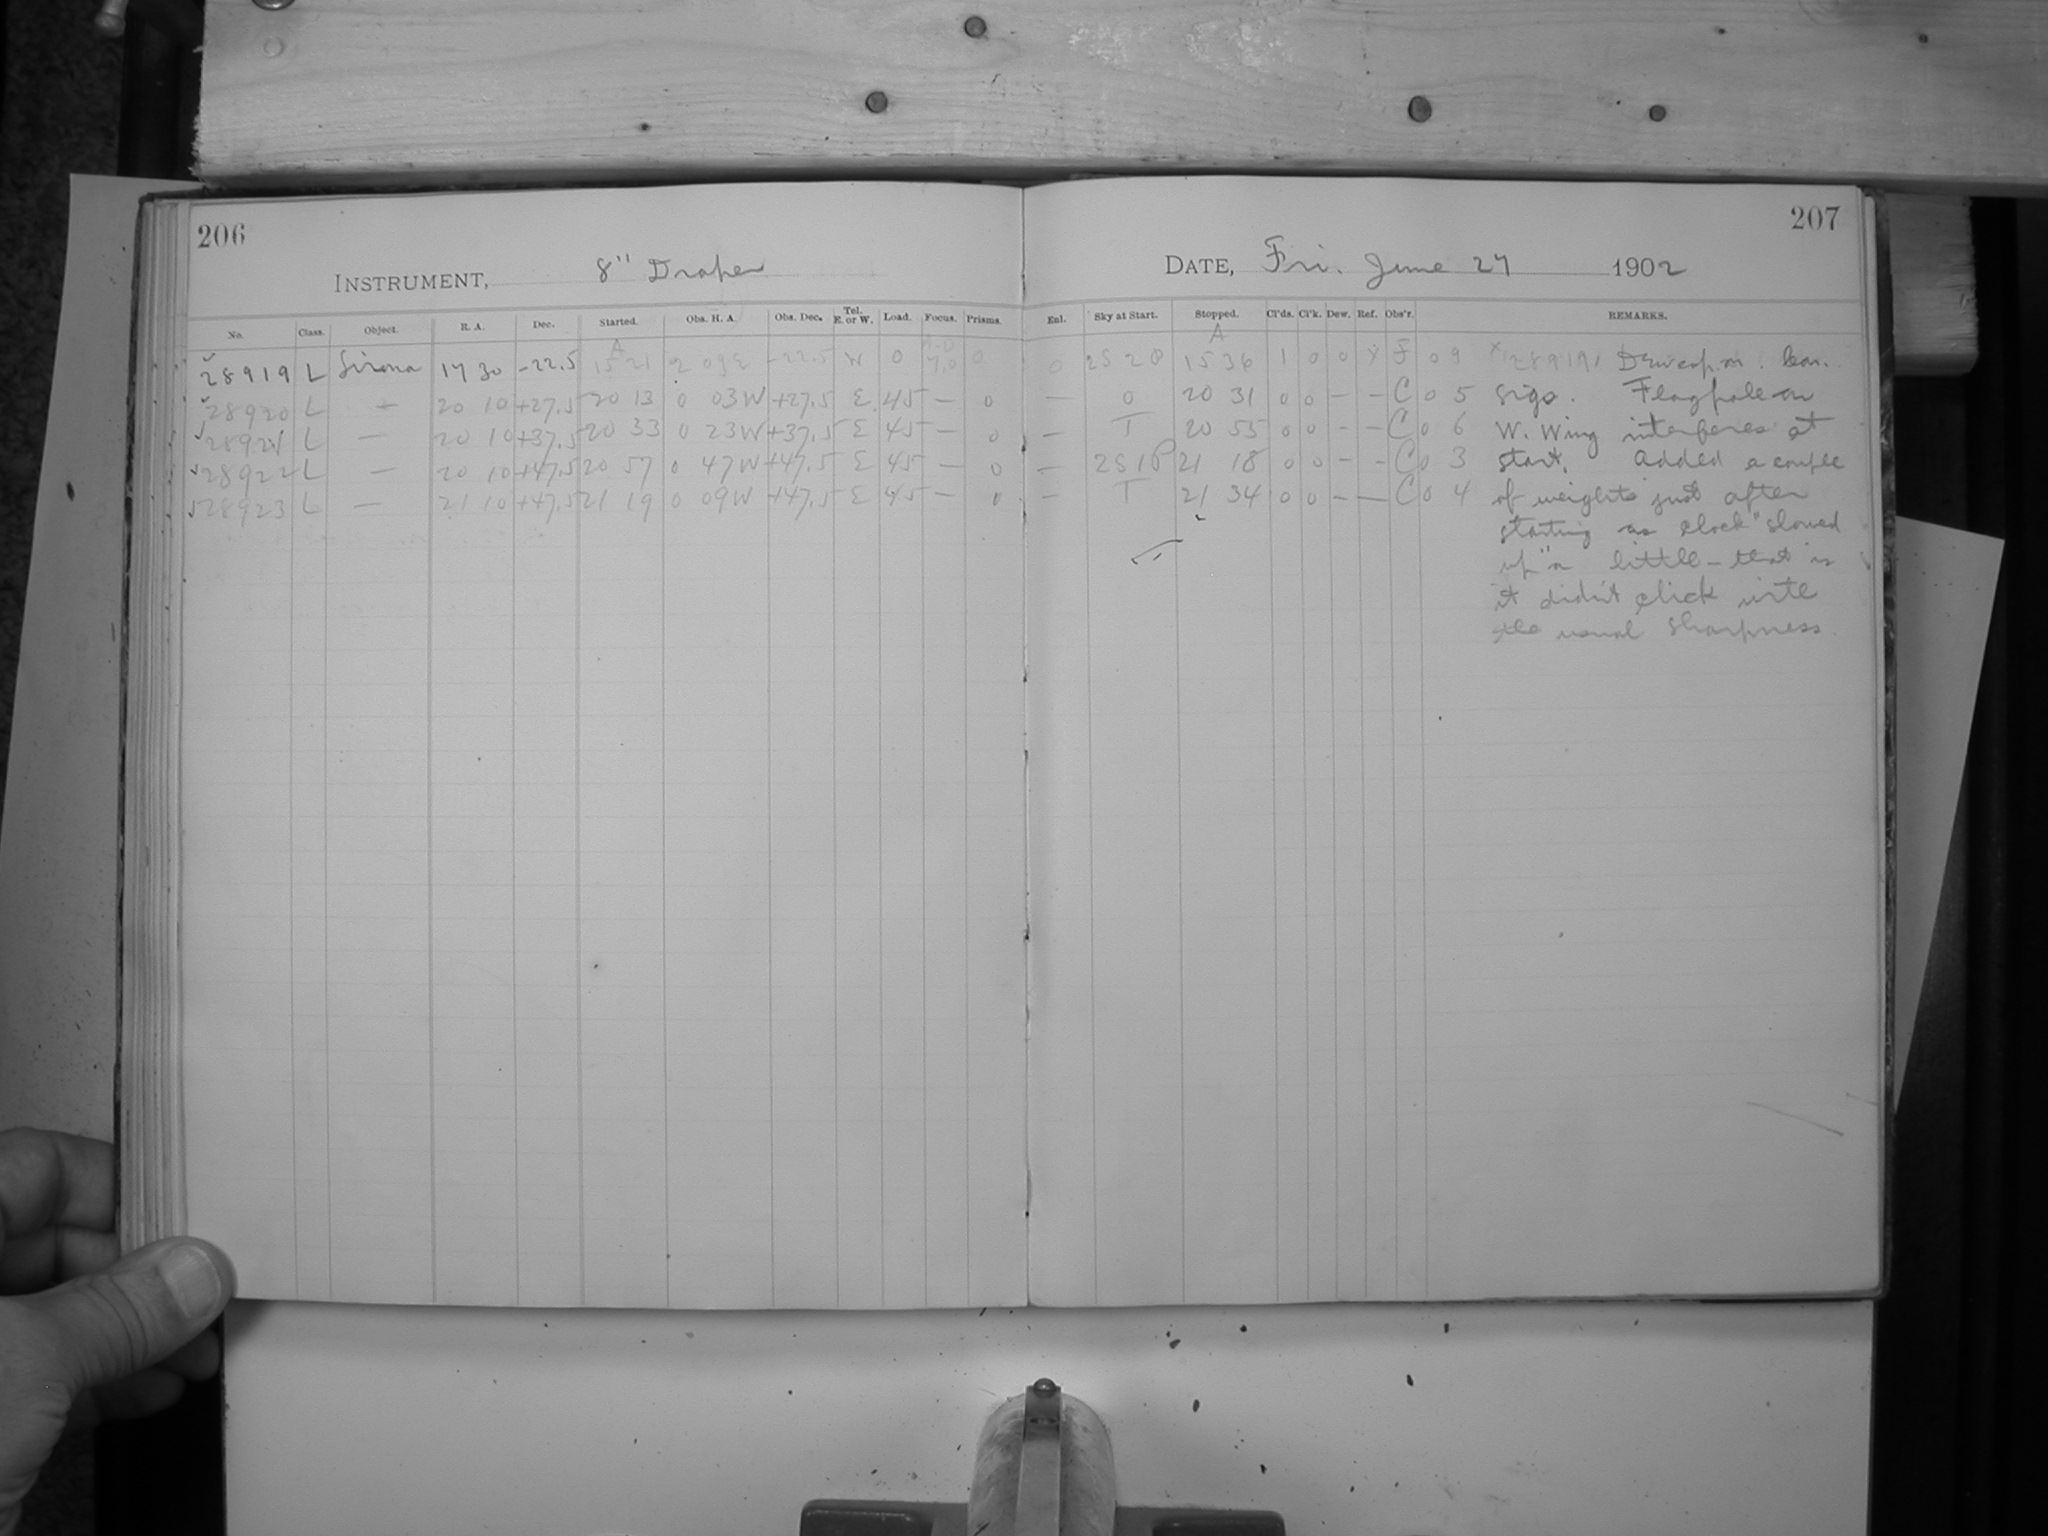 206
INSTRUMENT, 8" Draper
No. Class. Object. R. A. Dec. Started. Obs. H. A. Obs. Dec. Tel. E. or W. Load. Focus. Prisms.
28919 L Sirona 17 30 -22.5 A 15 21 2 09 E -22.5 W 0 7.0 0
28920 L — 20 10 +27.5 20 13 0 03 W +27.5 E 45 — 0
28921 L — 20 10 +37.5 20 33 0 23 W +37.5 E 45 — 0
28922 L — 20 10 +47.5 20 57 0 47 W +47.5 E 45 — 0
28923 L — 21 10 +47.5 21 19 0 09 W +47.5 E 45 — 0
207
DATE, Fri. June 27 1902
Enl. Sky at Start. Stopped. Cl'ds. Cl'k. Dew. Ref. Obs'r. REMARKS.
0 2S 20 A 15 36 1 0 0 F 0 9 28919,
— 0 20 31 0 0 — — C 0 5 Sigs. Flagpole on
— T 20 55 0 0 - - C 0 6 W. Wing interferes at
— 2S 1P 21 18 0 0 - - C 0 3 start. Added a couple
— T 21 34 0 0 — — C 0 4 of weights just after
starting as clock "slowed
up" a little — that is
it didn't click with
the usual sharpness.